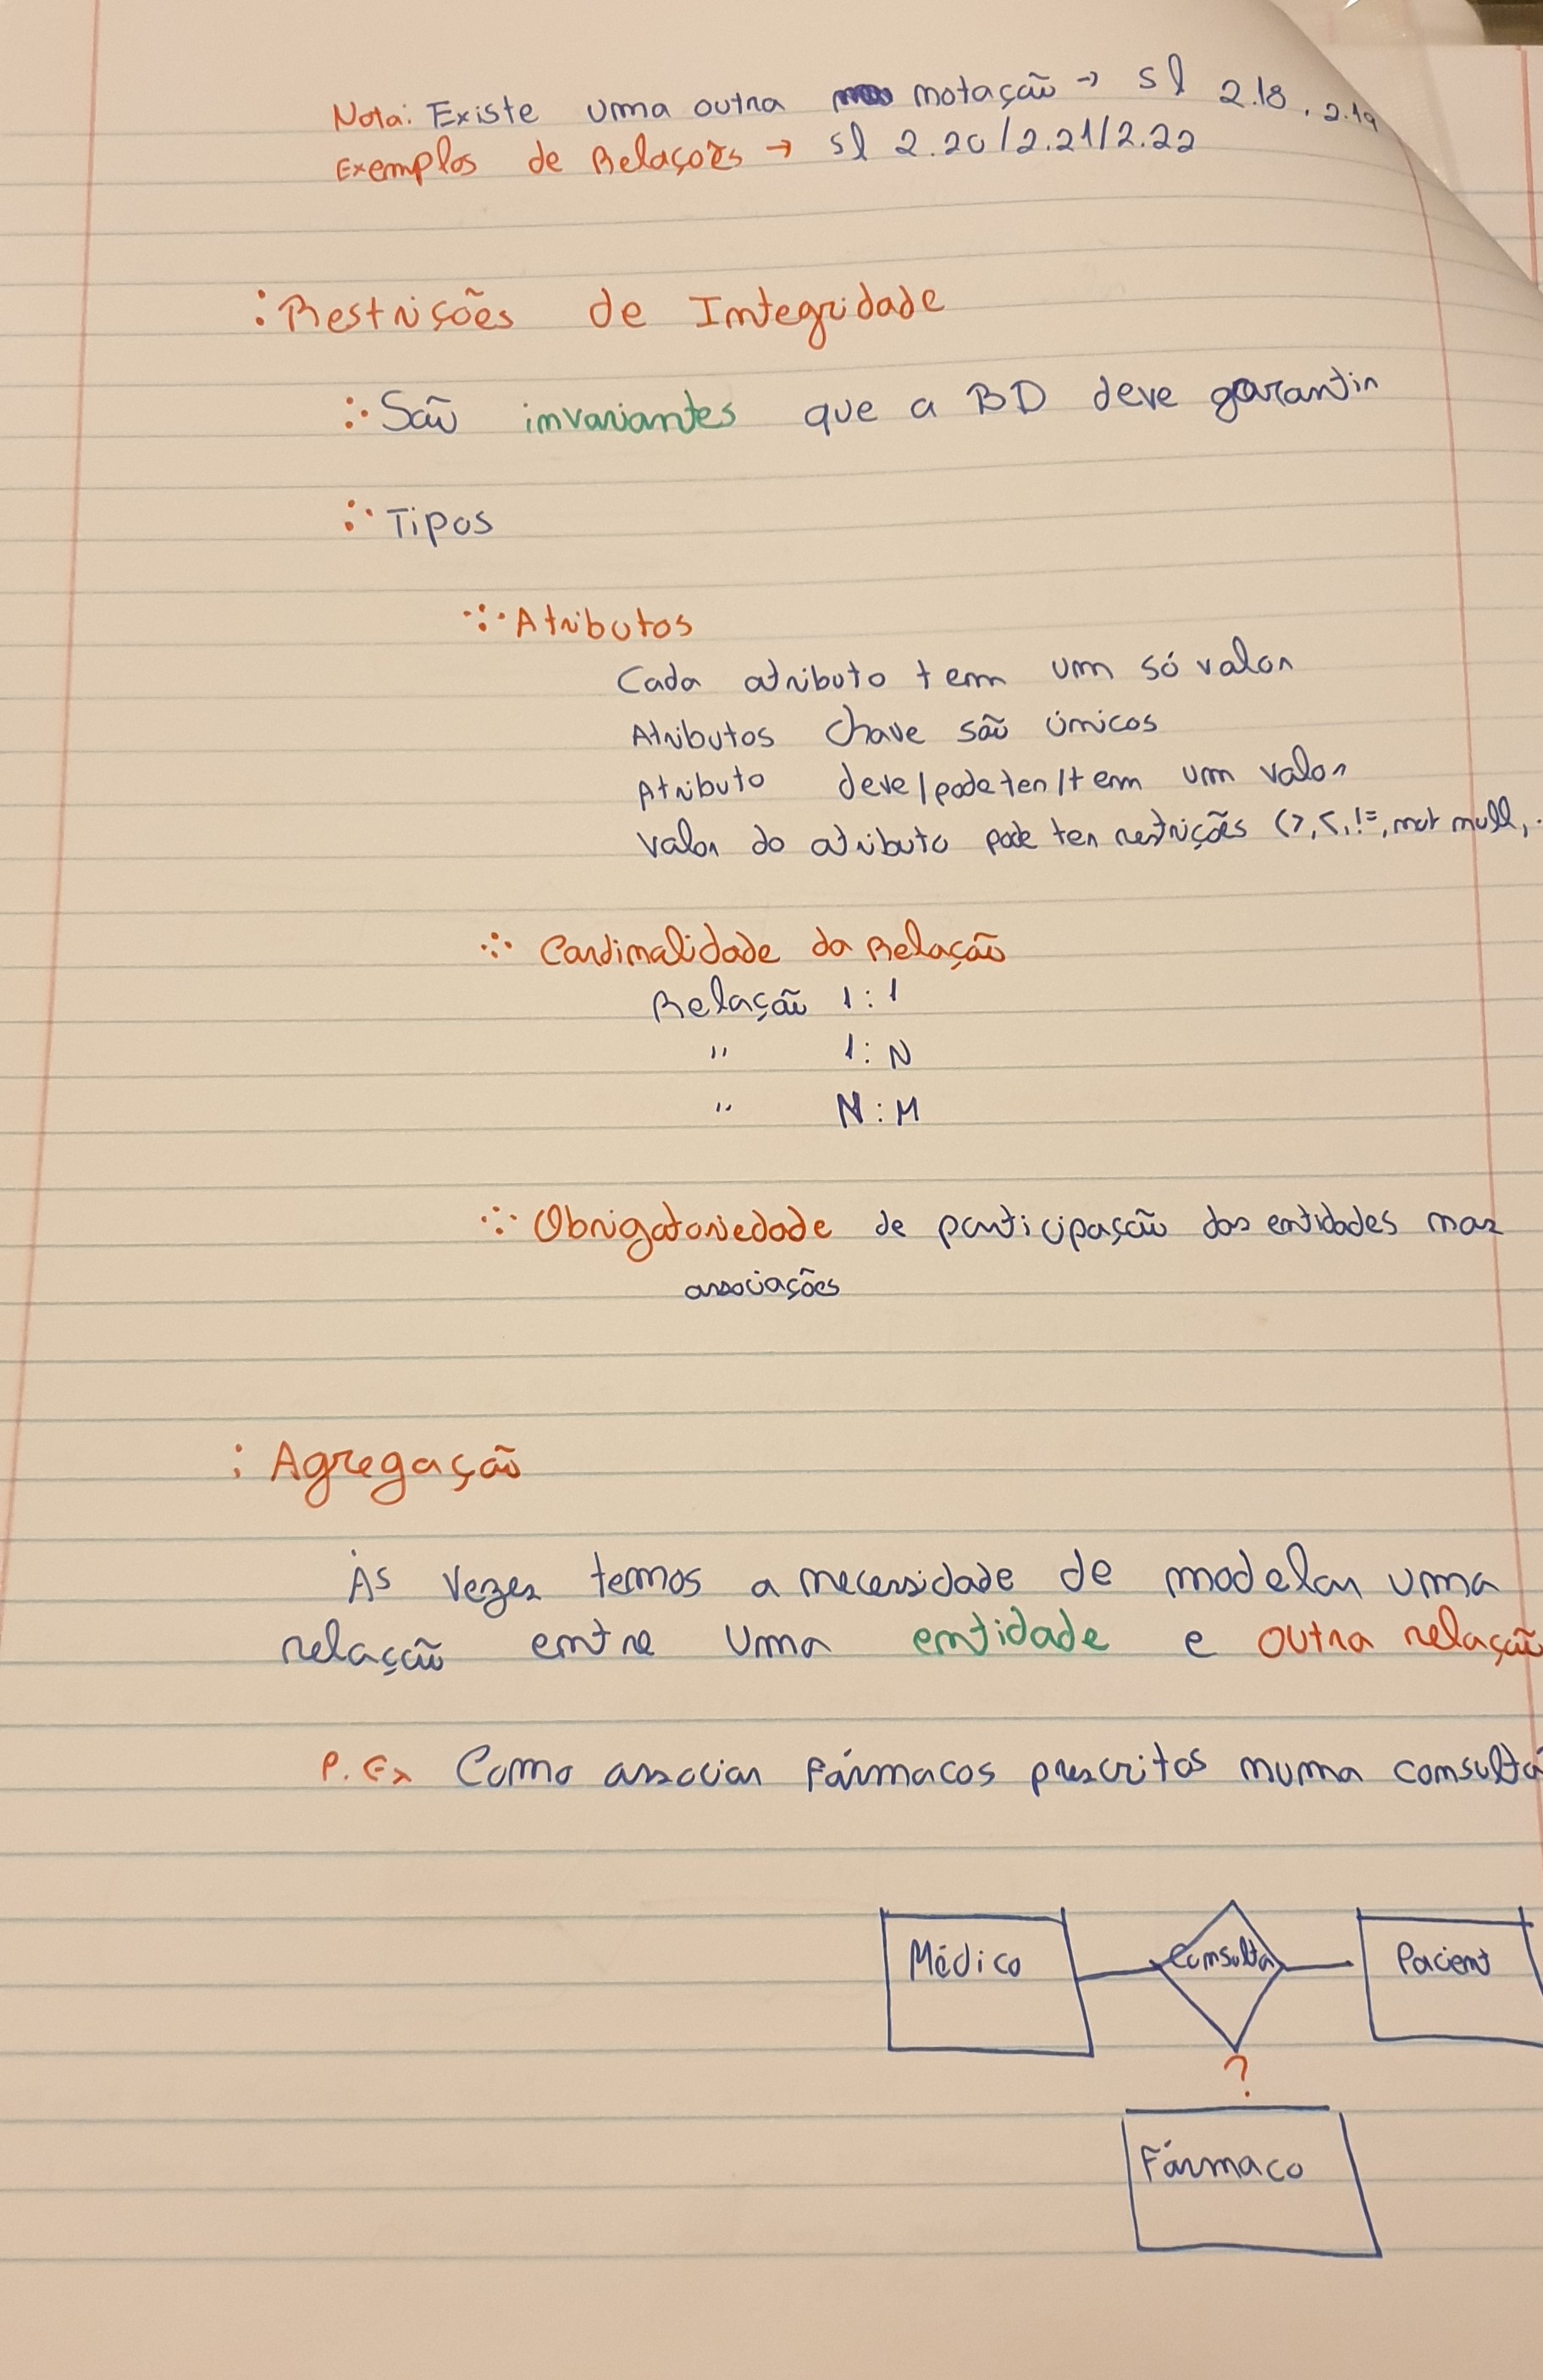 Nota: Existe uma outra notação → sl 2.18, 2.19
Exemplos de Relações → sl 2.20/2.21/2.22
: Restrições de Integridade
∴ São invariantes que a BD deve garantir
∴ Tipos
Atributos
Cada atributo tem um só valor
Atributos chave são únicos
Atributo deve/pode ter/tem um valor
valor do atributo pode ter restrições (>, <, !=, not null, .
Cardinalidade da Relação
Relação 1:1
" 1:N
" N:M
Obrigatoriedade de participação das entidades nas
associações
: Agregação
Às vezes temos a necessidade de modelar uma
relação entre uma entidade e outra relação
P. Ex Como associar fármacos prescritos numa consulta
Médico Consulta Pacient
?
Fármaco